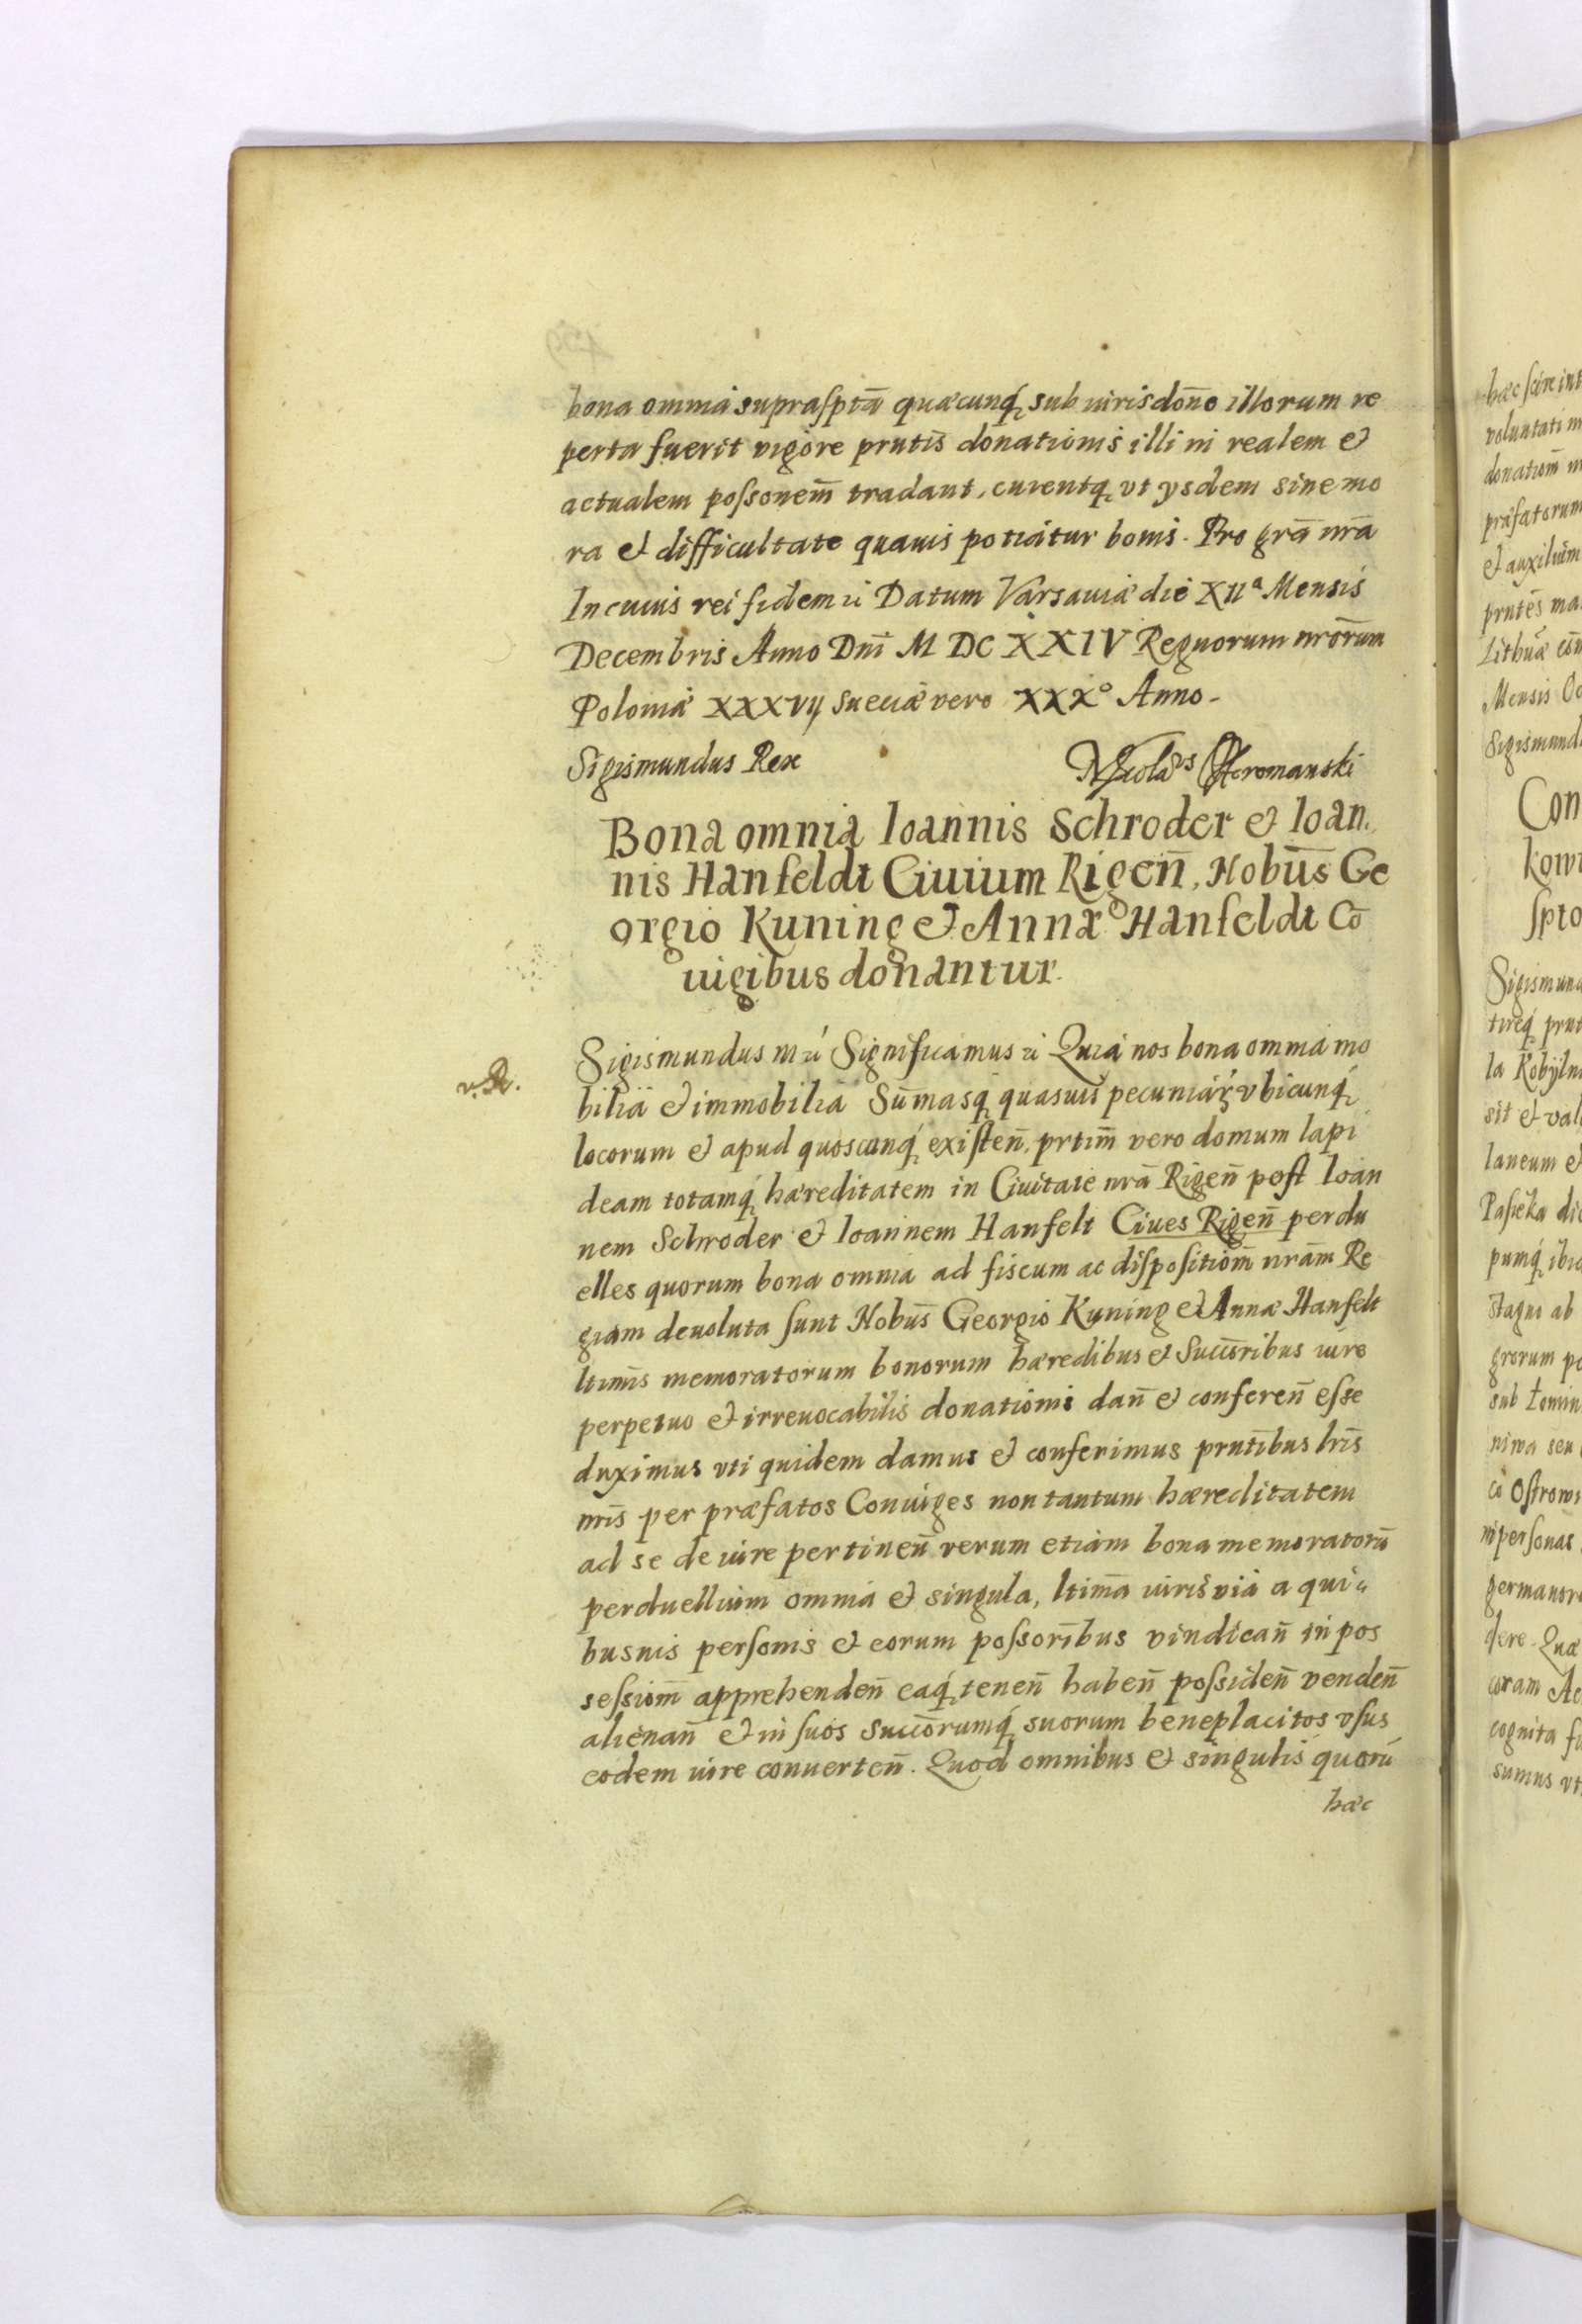 bona omnia supraſptā quæcunq̨ sub iurisdon̄e illorum re
perta fuerit vigore prntis donationis illi in realem et
actualem poſsonem̄ tradant, curentq̨ vt ysdem sine mo
ra et difficultate quauis potiatur bonis. Pro grā nrā
In cuius rei fidem ٪ Datum Varsauiæ die XIIª Mensis
Decembris Anno Dnī M DC XXIV Regnorum nrōrum
Poloniæ XXXVij Sueciæ vero XXXº Anno-
Sigismundus Rex
Bona omnia Ioannis Schroder et Ioan,
nis Hanfeldt Ciuium Rigen̄, Nobūs Ge
orgio Kuning et Annæ Hanfeldt Cō
iugibus donantur.
Sigismundus III Significamus Quia nos bona omnia mo
bilia et immobilia Sūmasq̨ quasuis pecuniar̨ vbicunq̨
locorum et apud quoscunq̨ exiſten̄, prtim̄ vero domum lapi
deam totamq̨ hæreditatem in Ciuitate nrā Rigen̄ poſt Ioan
nem Schroder et Ioannem Hanfelt Ciues Rigen̄ perdu
elles quorum bona omnia ad fiscum ac diſpoſitiom̄ nrām Re
giam deuoluta ſunt Nobūs Georgio Kuning et Annæ Hanfelt
ltimīs memoratorum bonorum hæredibus et Succōribus iure
perpetuo et irreuocabilis donationis dan̄ et conferen̄ eſse
duximus vti quidem damus et conferimus prntībus lrīs
nrīs per præfatos Coniuges non tantum hæreditatem
ad se de iure pertinen̄ verum etiam bona memoratorū
perduellium omnia et singula, ltimā iuris via a qui-
busuis perſonis et eorum poſsorībus vindican̄ in pos
seſsiom̄ apprehenden̄ eaq̨ tenen̄ haben̄ poſsiden̄ venden̄
alienan̄ et in ſuos Succōrumq̨ suorum beneplacitos vſus
eodem iure conuerten̄. Quod omnibus et singulis quorū
hæc
hæc ſcire int
voluntati n
donatiom̄
præfatorum
et auxilium
prntēs ma
Mensis Oc
Sigismund
Con
kowi
ſpto
Sigismund
tireq̨ prnt
la Kobylni
sit et val
laneum et
Paſieka di
pumq̨ ibid
stagni ab
grorum pe
niwa seu
co Oſtrow
germanor
dere. Quæ
coram Ac
cognita fu
sumus vt